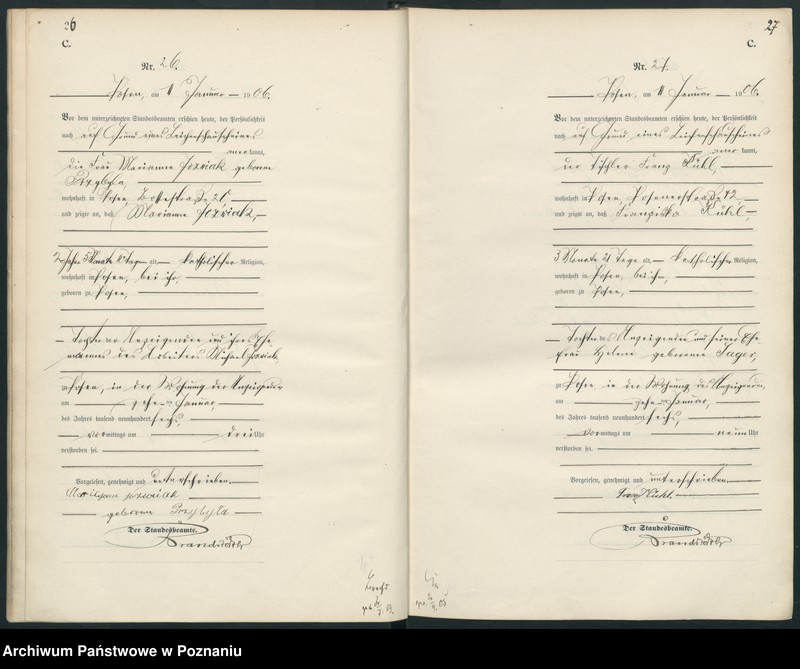 26
C.
Nr. 26.
Posen, am 11 Januar 1906.
Vor dem unterzeichneten Standesbeamten erschien heute, der Persönlichkeit
nach auf Grund eines Leichenschauscheines
anerkannt,
die Frau Marianna Jozwiak geborene
Przybyla,
wohnhaft in Posen,
und zeigte an, daß Marianna Jozwiak,
2 Jahre 5 Monate Tage alt, katholischer Religion,
wohnhaft in Posen, bei ihr,
geboren zu Posen,
Tochter der Anzeigenden und ihres Ehe-
mannes des Arbeiters Jozwiak
zu Posen, in der Wohnung der Anzeigenden
am zehn Januar,
des Jahres tausend neunhundert sechs,
vormittags um drei Uhr
verstorben sei.
Vorgelesen, genehmigt und unterschrieben.
geborene Przybyla
Der Standesbeamte.
27
C.
Nr. 27.
Posen, am 11 Januar 1906.
Vor dem unterzeichneten Standesbeamten erschien heute, der Persönlichkeit
nach auf Grund eines Leichenschauscheines
anerkannt,
der Tischler Franz Kühl,
wohnhaft in Posen, Posenerstraße 42,
und zeigte an, daß Franziska Kühl,
3 Monate 21 Tage alt, katholischer Religion,
wohnhaft in Posen, bei ihm,
geboren zu Posen,
Tochter des Anzeigenden und seiner Ehe-
frau Helene geborene Jager,
zu Posen, in der Wohnung des Anzeigenden,
am zehn Januar,
des Jahres tausend neunhundert sechs,
vormittags um neun Uhr
verstorben sei.
Vorgelesen, genehmigt und unterschrieben.
Franz Kühl.
Der Standesbeamte.
Archiwum Państwowe w Poznaniu